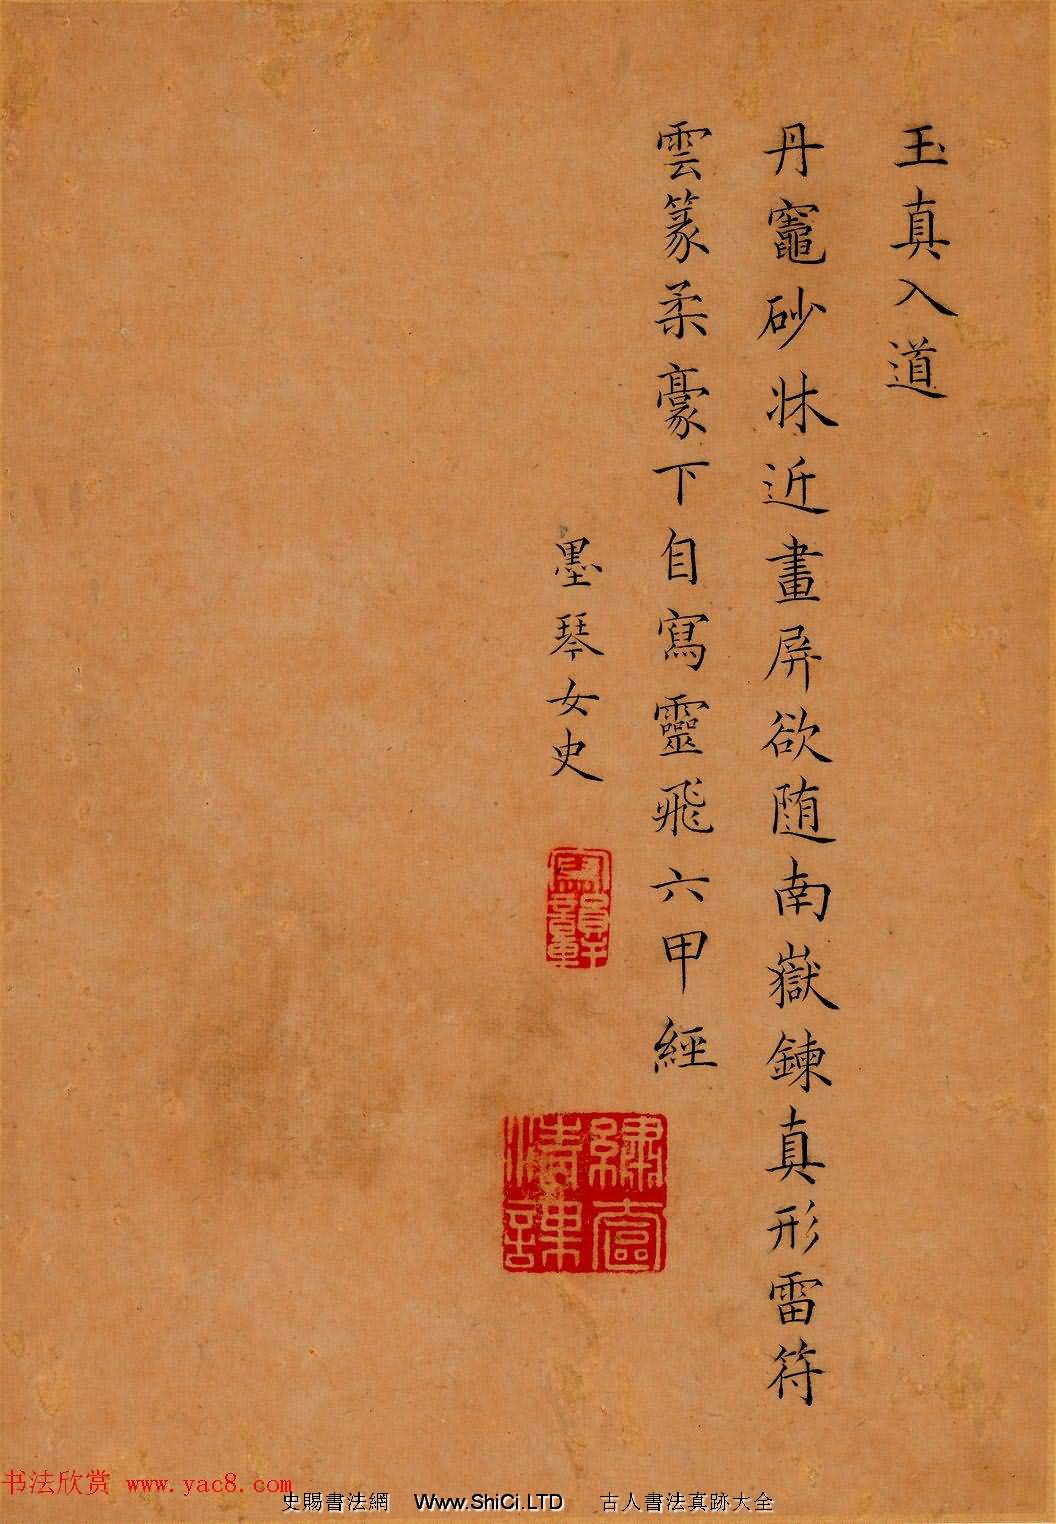 玉真入道
丹竈砂牀近畫屏欲随南嶽鍊真形雷符
雲篆柔豪下自寫靈飛六甲經
墨琴女史
寫韻軒
繡窗清課
书法欣赏 www.yac8.com
史賜書法網 Www.ShiCi.LTD 古人書法真跡大全